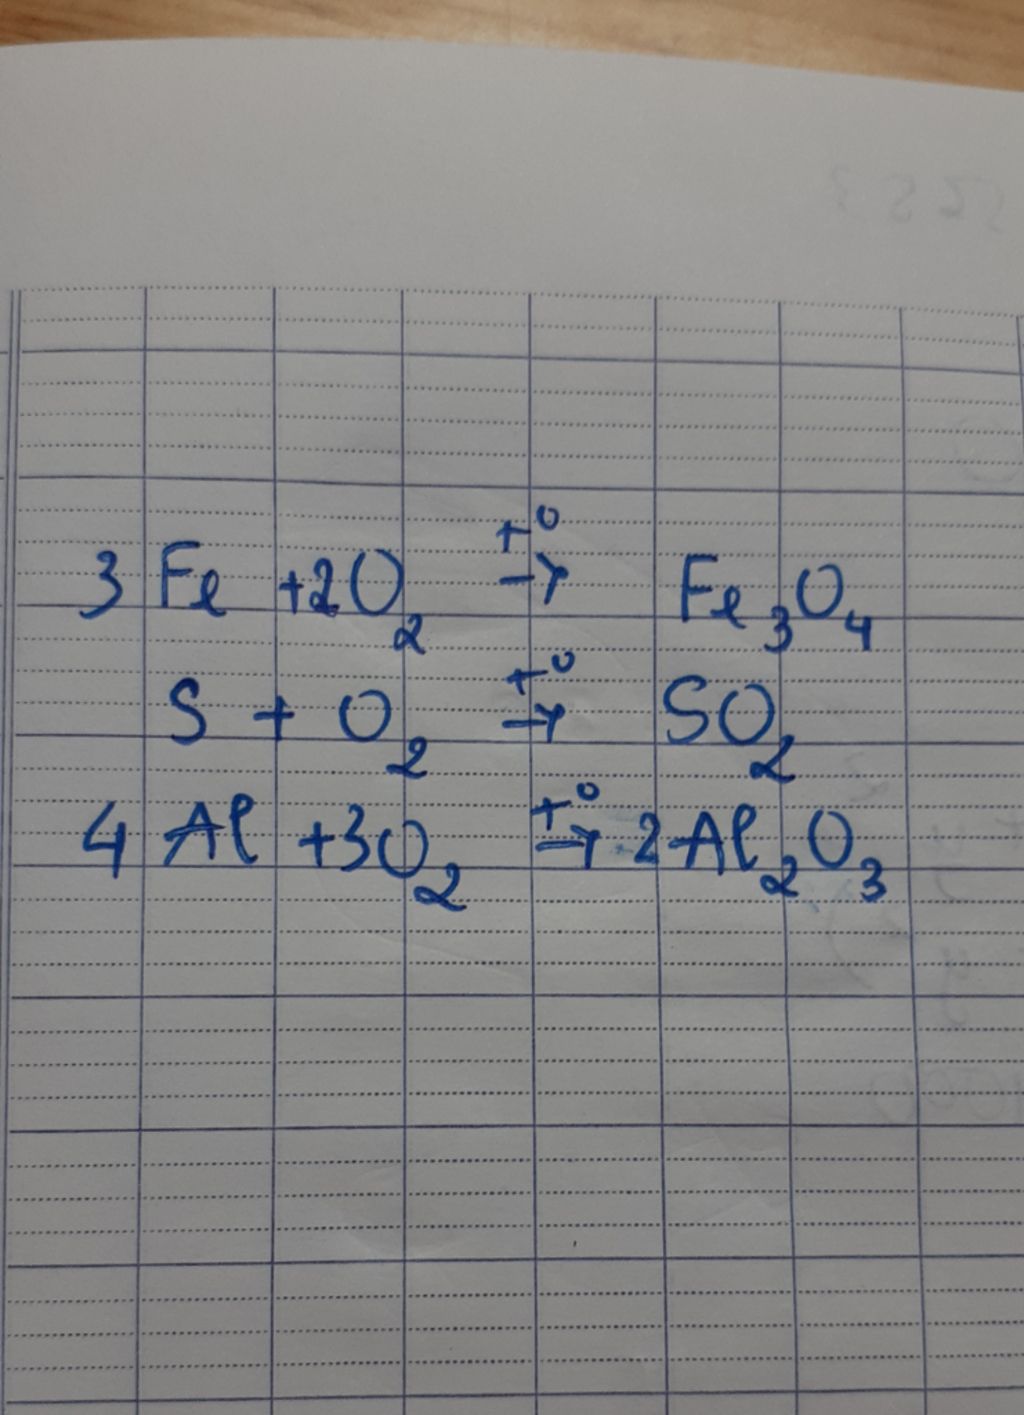 3 Fe + 2O₂ →t⁰ Fe₃O₄
S + O₂ →t⁰ SO₂
4 Al + 3O₂ →t⁰ 2Al₂O₃